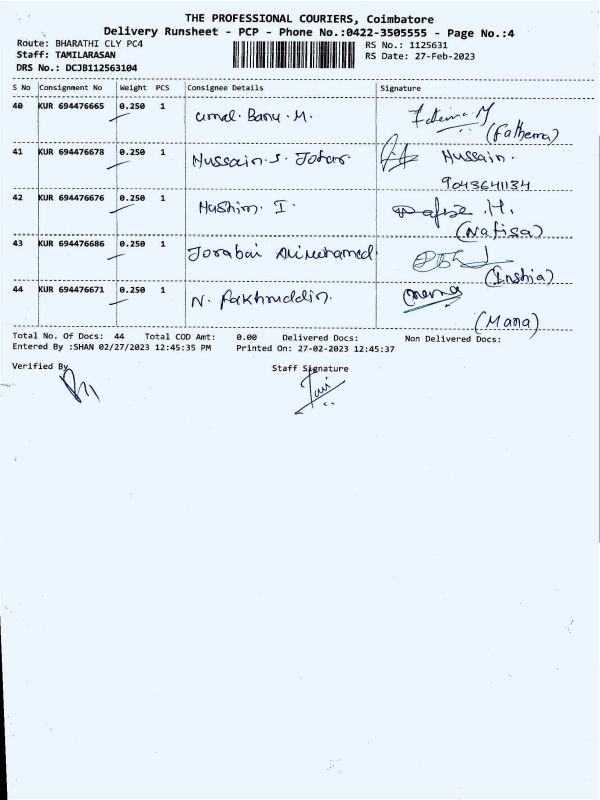 THE PROFESSIONAL COURIERS, Coimbatore
Delivery Runsheet - PCP - Phone No.:0422-3505555 - Page No.:4
Route: BHARATHI CLY PC4 RS No.: 1125631
Staff: TAMILARASAN RS Date: 27-Feb-2023
DRS No.: DCJB112563104
S No Consignment No Weight PCS Consignee Details Signature
40 KUR 694476665 0.250 1 Umal. Banu. M. Fatema M
(Fathema)
41 KUR 694476678 0.250 1 Hussain. S. Johar. Hussain.
9043641134
42 KUR 694476676 0.250 1 Hashim. I. .H.
(Nafisa)
43 KUR 694476686 0.250 1 Jorabai
(Inshia)
44 KUR 694476671 0.250 1 N. Fakhruddin.
(Maria)
Total No. Of Docs: 44 Total COD Amt: 0.00 Delivered Docs: Non Delivered Docs:
Entered By :SHAN 02/27/2023 12:45:35 PM Printed On: 27-02-2023 12:45:37
Verified By Staff Signature